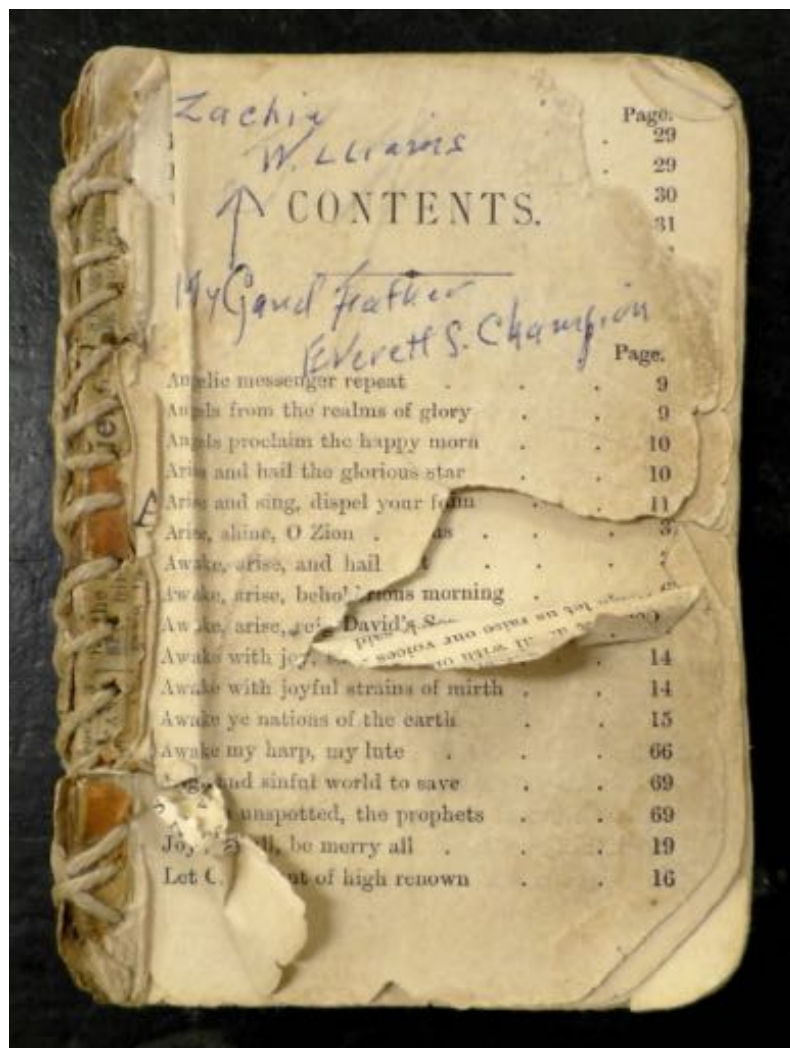 Zachie
Williams
Page.
29
29
30
31
CONTENTS.
My Gand Feather
Everett S. Champion
Page.
Angelic messenger repeat . . . 9
Angels from the realms of glory . . 9
Angels proclaim the happy morn . . 10
Arise and hail the glorious star . . 10
Arise and sing, dispel your . . 11
Arise, shine, O Zion .
Awake, arise, and hail
Awake, arise, behol rious morning
Awake, arise, rei David's
said
let us raise our voices
Awake with joy, . . 14
Awake with joyful strains of mirth . . 14
Awake ye nations of the earth . . 15
Awake my harp, my lute . . . 66
and sinful world to save . . 69
unspotted, the prophets . . 69
Joy all, be merry all . . . 19
Let of high renown . . 16